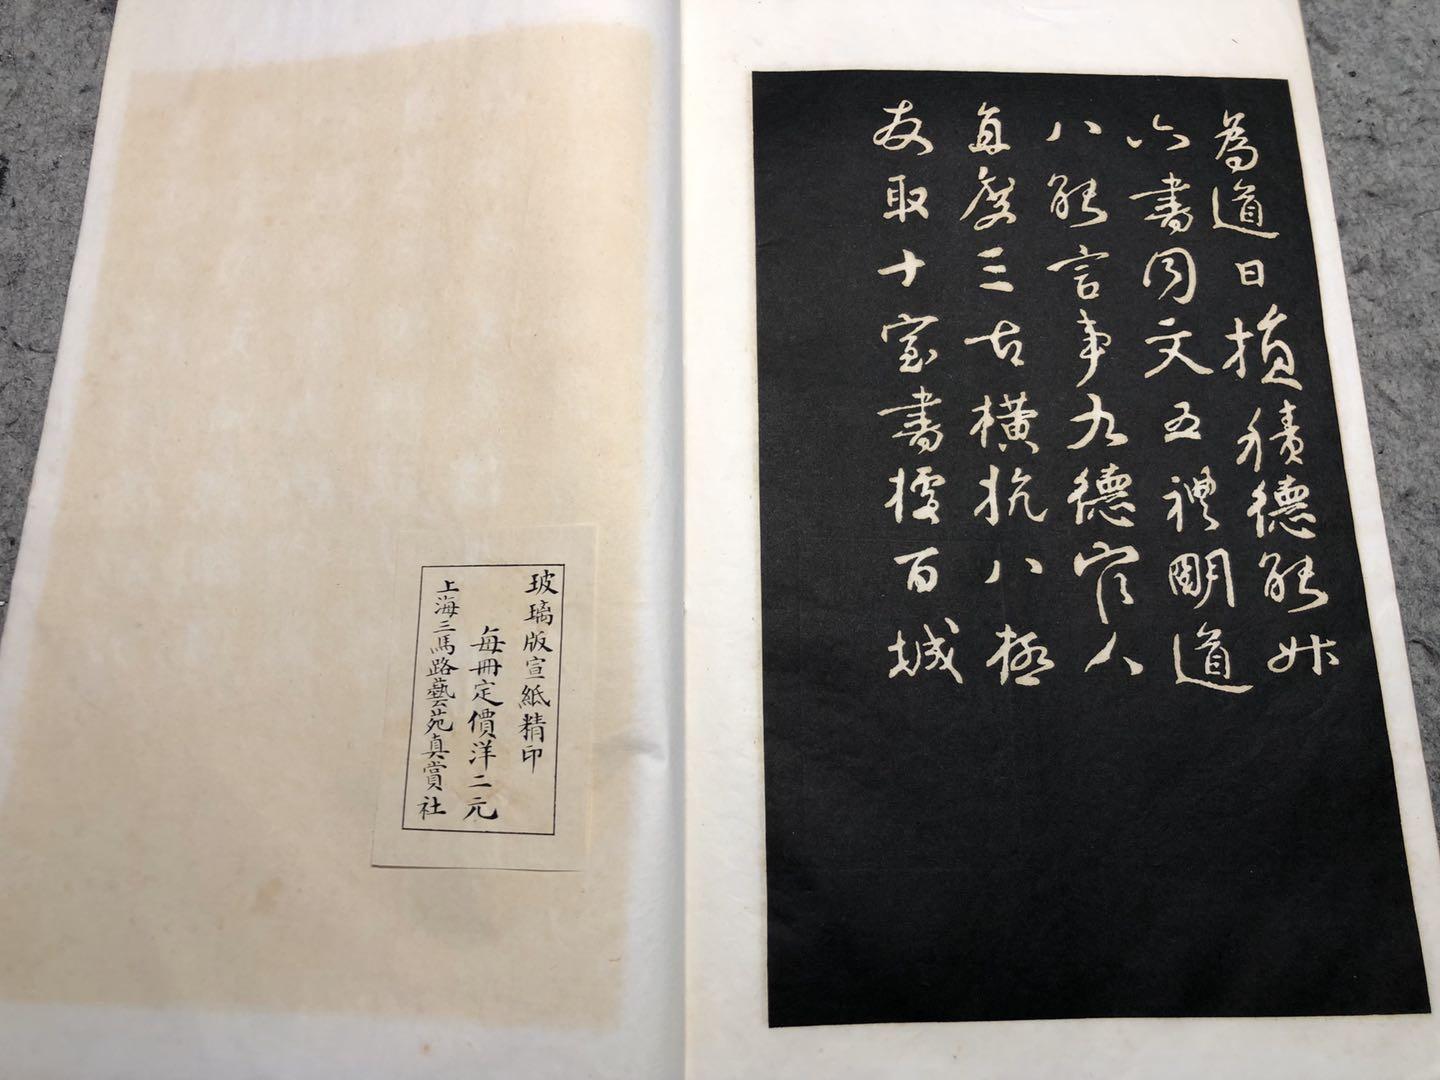 為道日損積德能
六書同文五禮明道
八能言事九德官人
直度三古橫抗八極
友取十室書擁百城
玻璃版宣紙精印
每冊定價洋二元
上海三馬路藝苑真賞社